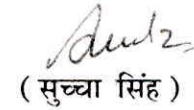 ( सुच्चा सिंह )